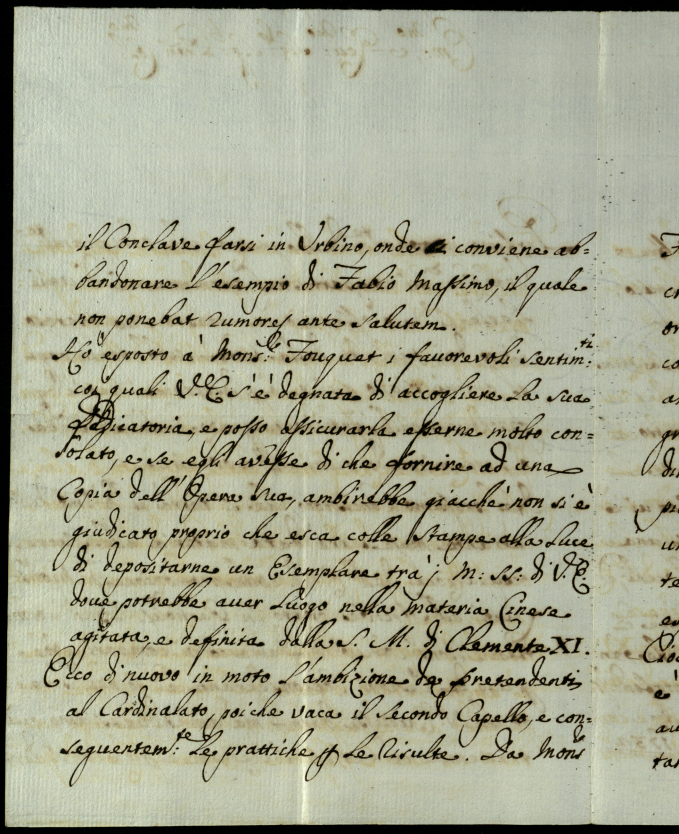 il Conclave farsi in Urbino, onde ci conviene ab=
bandonare l'esempio di Fabio Massimo, il quale
non ponebat rumores ante salutem.
Hò esposto à Mons.re Fouquet i favorevoli sentim.ti
coi quali V.E. s'è degnata di accogliere la sua
Dedicatoria, e posso assicurarla esserne molto con=
solato, e se egli avesse di che fornire ad una
Copia dell'Opera sua, ambirebbe giacchè non si è
giudicato proprio che esca colle stampe alla luce
di depositarne un Esemplare trà j M: SS: di V.E.
dove potrebbe aver luogo nella materia Cinese
agitata, e definita dalla S. M. di Clemente XI.
Ecco di nuovo in moto l'ambizione de pretendenti
al Cardinalato, poiche vaca il secondo Capello, e con=
seguentem:te le prattiche p le risulte. Da Mons